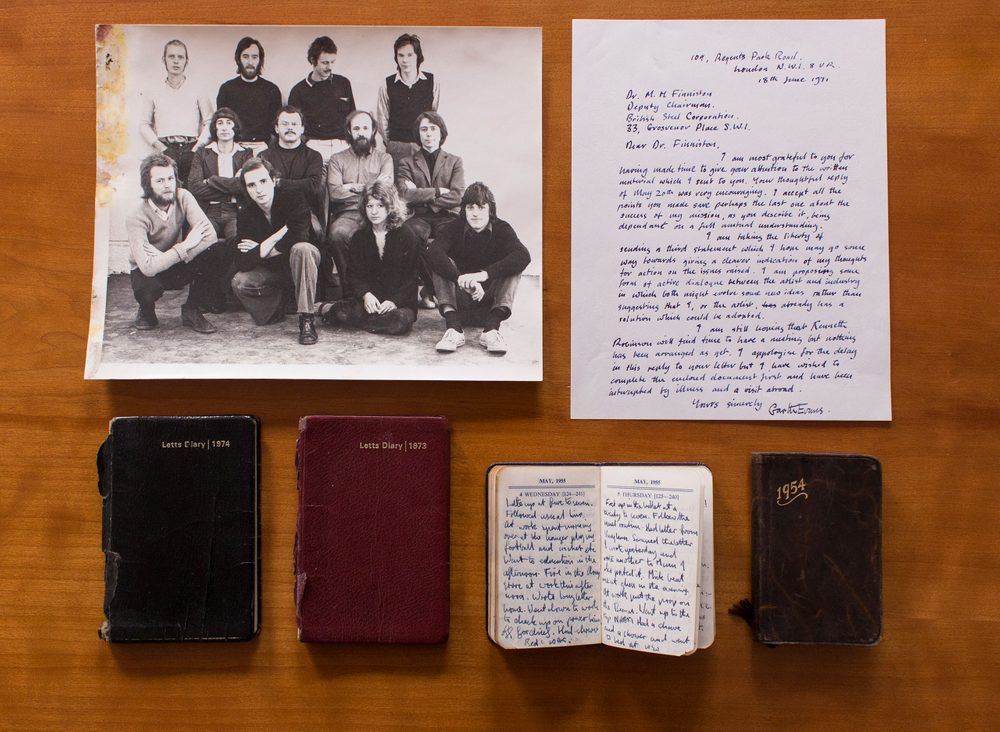 109, Regents Park Road.
London N.W.1. 8 UR.
18th June 1971
Dr. M. H. Finniston
Deputy Chairman.
British Steel Corporation.
33, Grosvenor Place S.W.1.
Dear Dr. Finniston,
I am most grateful to you for
having made time to give your attention to the written
material which I sent to you. Your thoughtful reply
of May 20th was very encouraging. I accept all the
points you made save perhaps the last one about the
success of my mission, as you describe it, being
dependant on a full mutual understanding.
I am taking the liberty of
sending a third statement which I hope may go some
way towards giving a clearer indication of my thoughts
for action on the issues raised. I am proposing some
form of active dialogue between the artist and industry
in which both might evolve some new ideas rather than
suggesting that I, or the artist, already has a
solution which could be adopted.
I am still hoping that Kenneth
Robinson will find time to have a meeting but nothing
has been arranged as yet. I appologise for the delay
in this reply to your letter but I have wished to
complete the enclosed document first and have been
interrupted by illness and a visit abroad.
Yours sincerely
Garth Evans.
Letts Diary | 1974
Letts Diary | 1973
MAY, 1955
4 WEDNESDAY [124—241]
up at five to seven.
Followed usual line.
At work spent morning
over at the hanger playing
football and cricket etc
Went to education in the
afternoon. Fire in the
store at work this after
noon. Wrote long letter
home. Went down to work
to check up on
Bed:
MAY, 1955
5 THURSDAY [125—240]
up in the billet at a
to seven. Follow the
usual routine. Had letter from
the letter
I wrote yesterday and
one another to them I
posted it. Mick beat
at chess in the evening
At work put the prop on
the Went up to the
NAAFI Had a
and a shower and went
to bed at
1954